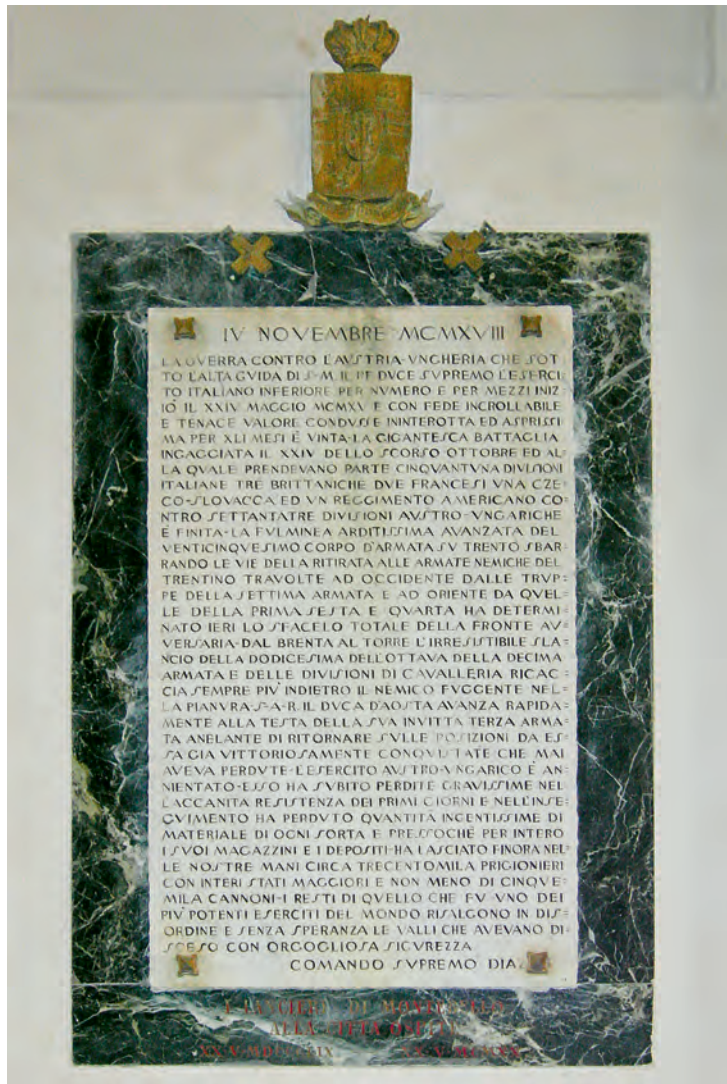 IV NOVEMBRE MCMXVIII
LA GVERRA CONTRO L'AVSTRIA-VNGHERIA CHE SOT=
TO L'ALTA GVIDA DI S-M-IL RE DVCE SVPREMO L'ESERCI=
TO ITALIANO INFERIORE PER NVMERO E PER MEZZI INIZ=
IÒ IL XXIV MAGGIO MCMXV E CON FEDE INCROLLABILE
E TENACE VALORE CONDVSSE ININTEROTTA ED ASPRISSI=
MA PER XLI MESI È VINTA-LA GIGANTESCA BATTAGLIA
INGAGGIATA IL XXIV DELLO SCORSO OTTOBRE ED AL=
LA QVALE PRENDEVANO PARTE CINQVANTVNA DIVISIONI
ITALIANE TRE BRITTANICHE DVE FRANCESI VNA CZE=
CO-SLOVACCA ED VN REGGIMENTO AMERICANO CO=
NTRO SETTANTATRE DIVISIONI AVSTRO-VNGARICHE
È FINITA-LA FVLMINEA ARDITISSIMA AVANZATA DEL
VENTICINQVESIMO CORPO D'ARMATA SV TRENTO SBAR=
RANDO LE VIE DELLA RITIRATA ALLE ARMATE NEMICHE DEL
TRENTINO TRAVOLTE AD OCCIDENTE DALLE TRVP=
PE DELLA SETTIMA ARMATA E AD ORIENTE DA QVEL=
LE DELLA PRIMA SESTA E QVARTA HA DETERMI=
NATO IERI LO SFACELO TOTALE DELLA FRONTE AV=
VERSARIA-DAL BRENTA AL TORRE L'IRRESISTIBILE SLA=
NCIO DELLA DODICESIMA DELL'OTTAVA DELLA DECIMA
ARMATA E DELLE DIVISIONI DI CAVALLERIA RICAC=
CIA SEMPRE PIV' INDIETRO IL NEMICO FVGGENTE NEL=
LA PIANVRA-S-A-R. IL DVCA D'AOSTA AVANZA RAPIDA=
MENTE ALLA TESTA DELLA SVA INVITTA TERZA ARMA=
TA ANELANTE DI RITORNARE SVLLE POSIZIONI DA ES=
SA GIA VITTORIOSAMENTE CONQVISTATE CHE MAI
AVEVA PERDVTE-L'ESERCITO AVSTRO-VNGARICO È AN=
NIENTATO-ESSO HA SVBITO PERDITE GRAVISSIME NEL
L'ACCANITA RESISTENZA DEI PRIMI GIORNI E NELL'INSE=
GVIMENTO HA PERDVTO QVANTITÀ INGENTISSIME DI
MATERIALE DI OGNI SORTA E PRESSOCHÈ PER INTERO
I SVOI MAGAZZINI E I DEPOSITI-HA LASCIATO FINORA NEL=
LE NOSTRE MANI CIRCA TRECENTOMILA PRIGIONIERI
CON INTERI STATI MAGGIORI E NON MENO DI CINQVE=
MILA CANNONI-I RESTI DI QVELLO CHE FV VNO DEI
PIV' POTENTI ESERCITI DEL MONDO RISALGONO IN DIS=
ORDINE E SENZA SPERANZA LE VALLI CHE AVEVANO DI=
SCESO CON ORGOGLIOSA SICVREZZA
COMANDO SVPREMO DIAZ
I LANCIERI DI MONTEBELLO
ALLA CITTÀ